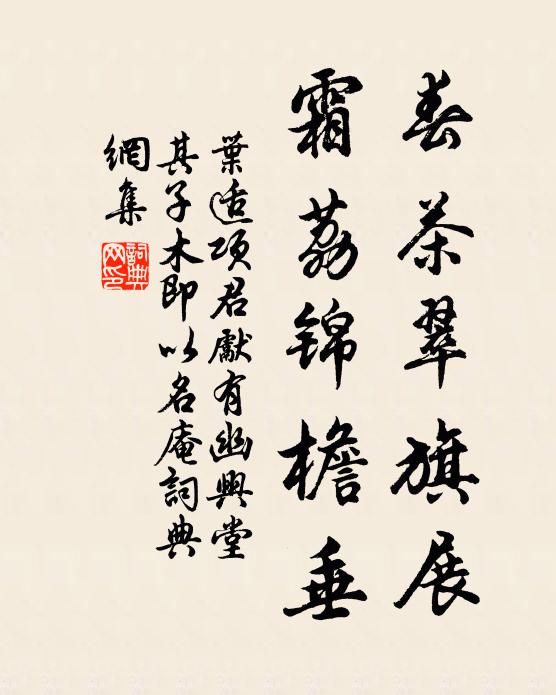 春茶翠旗展
霜荔锦檐垂
葉适项君獻有幽興堂
其子木即以名庵詞典
網集
詞典
网印